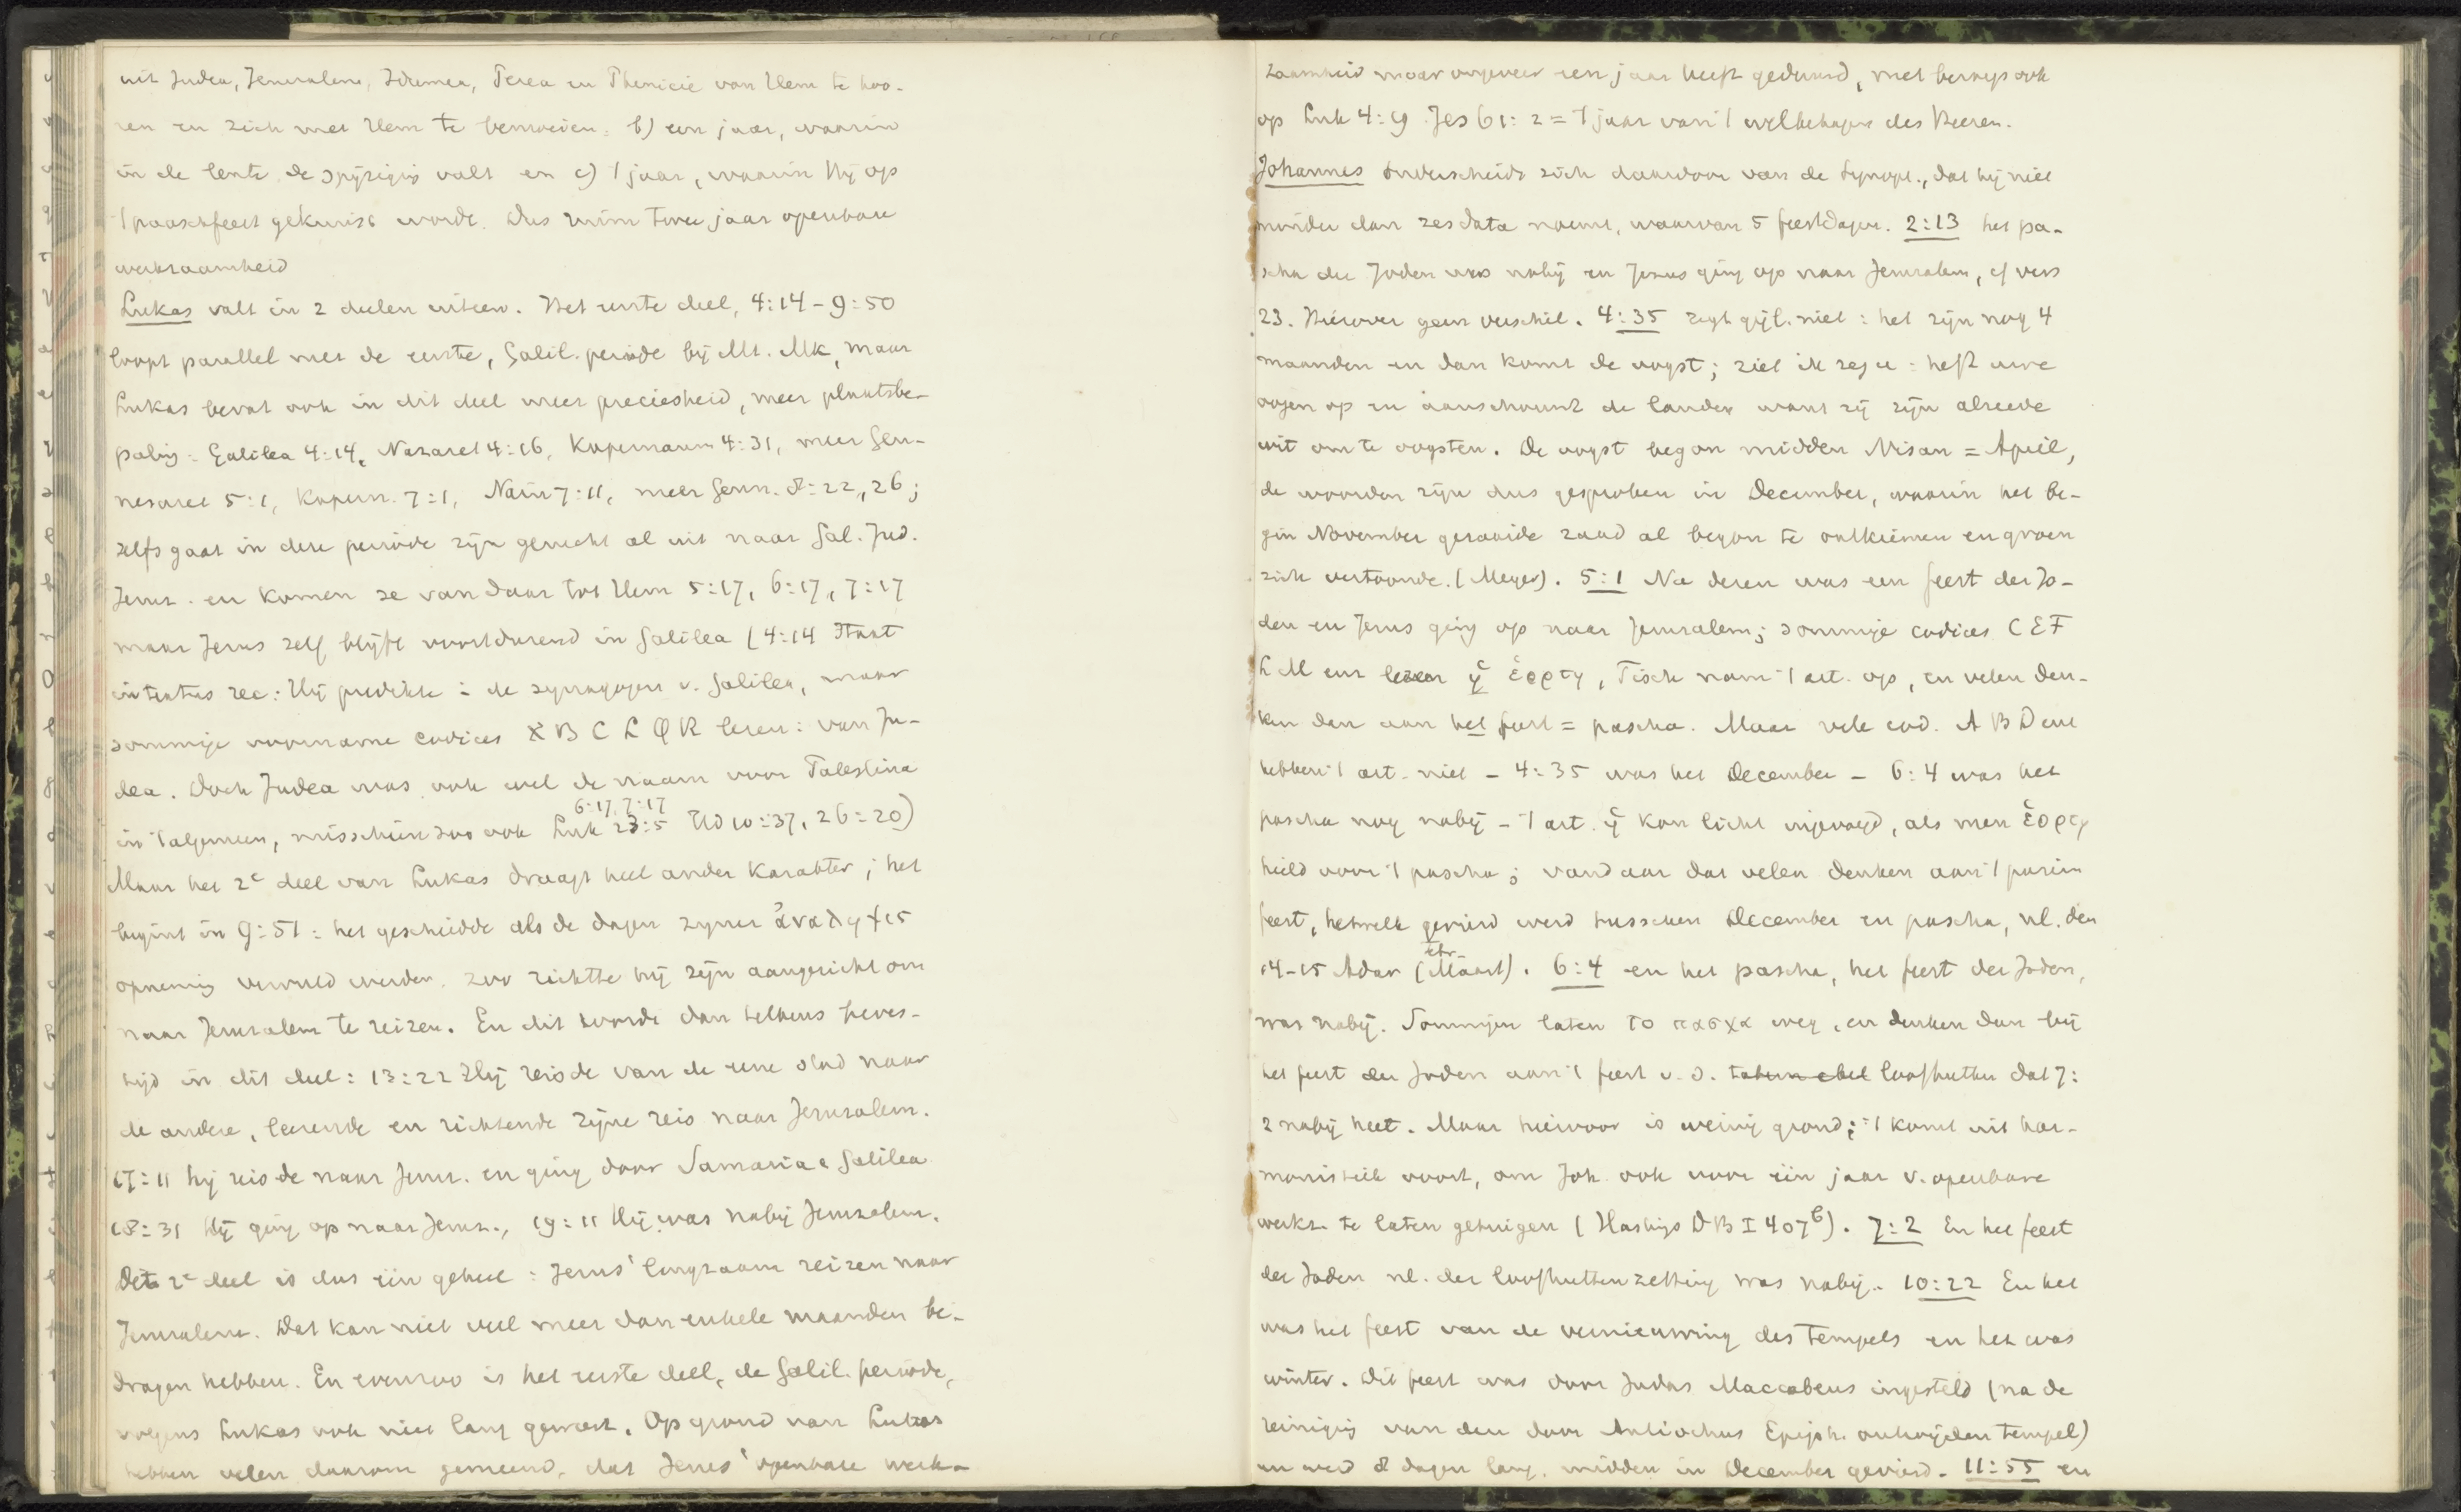 uit Judea, Jeruzalem, Idumea, Perea en Phenicië van Hem te hoo-
ren en zich met Hem te bemoeien: b) een jaar, waarin
in de lente de spijziging valt en c) 't jaar, waarin Hij op
't paaschfeest gekruisd wordt. Dus ruim twee jaar openbare
werkzaamheid
Lukas valt in 2 deelen uiteen. Het eerste deel, 4:14-9:50
loopt parallel met de eerste, Galil. periode bij Mt. Mk, maar
Lukas bevat ook in dit deel meer preciesheid, meer plaatsbe-
paling: Galilea 4:14, Nazaret 4:16, Kapernaum 4:31, meer Gen-
nesaret 5:1, Kapern. 7:1, Naïn 7:11, meer Genn. 8:22, 26;
zelfs gaat in deze periode zijn gerucht al uit naar Gal. Jud.
Jeruz. en komen ze van daar tot Hem 5:17, 6:17, 7:17
maar Jezus zelf blijft voortdurend in Galilea (4:44 staat
in textus rec: Hij predikte i de synagogen v. Galilea, maar
sommige voorname codices א B C L Q R lezen: van Ju-
dea. Doch Judea was ook wel de naam voor Palestina
6:17, 7:17
in 't algemeen, misschien zoo ook Luk 23:5 Hd 10:37, 26:20)
Maar het 2e deel van Lukas draagt heel ander karakter; het
begint in 9:51: het geschiedde als de dagen zijner ἀναληψις
opneming vervuld werden, zoo richtte hij zijn aangezicht om
naar Jeruzalem te reizen. En dit wordt dan telkens herhaald
in dit deel: 13:22 Hij reisde van de eene stad naar
de andere, leerende en richtende zijne reis naar Jeruzalem.
17:11 hij reisde naar Jeruz. en ging door Samaria e Galilea
18:31 Hij ging op naar Jeruz., 19:11 Hij was nabij Jeruzalem.
Dit 2e deel is dus één geheel: Jezus' langzaam reizen naar
Jeruzalem. Dat kan niet veel meer dan enkele maanden be-
dragen hebben. En evenzoo is het eerste deel, de Galil. periode,
volgens Lukas ook niet lang geweest. Op grond van Lukas
hebben velen daarom gemeend, dat Jezus' openbare werk-
zaamheid maar ongeveer een jaar heeft geduurd, met beroep ook
op Luk 4:19 Jes 61:2 = 't jaar van 't welbehagen des Heeren.
Johannes onderscheidt zich daardoor van de Synopt., dat hij niet
minder dan zes data noemt, waarvan 5 feestdagen. 2:13 het pa-
scha der Joden was nabij en Jezus ging op naar Jeruzalem, cf vers
23. Hierover geen verschil. 4:35 zegt gijl. niet: het zijn nog 4
maanden en dan komt de oogst; ziet ik zeg u: heft uwe
oogen op en aanschouwt de landen want zij zijn alreede
wit om te oogsten. De oogst begon midden Nisan = April,
de woorden zijn dus gesproken in December, waarin het be-
gin November gezaaide zaad al begon te ontkiemen en groen
zich vertoonde. (Meyer). 5:1 Na dezen was een feest der Jo-
den en Jezus ging op naar Jeruzalem; sommige codices C E F
L M enz lezen ἡ ἑορτη, Tisch nam 't art. op, en velen den-
ken dan aan het feest = pascha. Maar vele cod. A B D enz
hebben 't art. niet - 4:35 was het December - 6:4 was het
pascha nog nabij - 't art. ἡ kan licht ingevoegd, als men ἑορτη
hield voor 't pascha; vandaar dat velen denken aan 't purim
feest, hetwelk gevierd werd tusschen December en pascha, nl. den
14-15 Adar (Maart). 6:4 en het pascha, het feest der Joden,
was nabij. Sommigen laten το πασχα weg, en denken dan bij
het feest der Joden aan 't feest v. d. loofhutten dat 7:
2 nabij heet. Maar hiervoor is weinig grond; 't komt uit har-
monistiek voort, om Joh. ook voor één jaar v. openbare
werkz. te laten getuigen (Hastings DB I 407b). 7:2 En het feest
der Joden nl. der loofhuttenzetting was nabij. 10:22 En het
was het feest van de vernieuwing des tempels en het was
winter. Dit feest was door Judas Maccabeus ingesteld (na de
reiniging van den door Antiochus Epiph. ontwijden tempel)
en werd 8 dagen lang, midden in December gevierd. 11:55 en